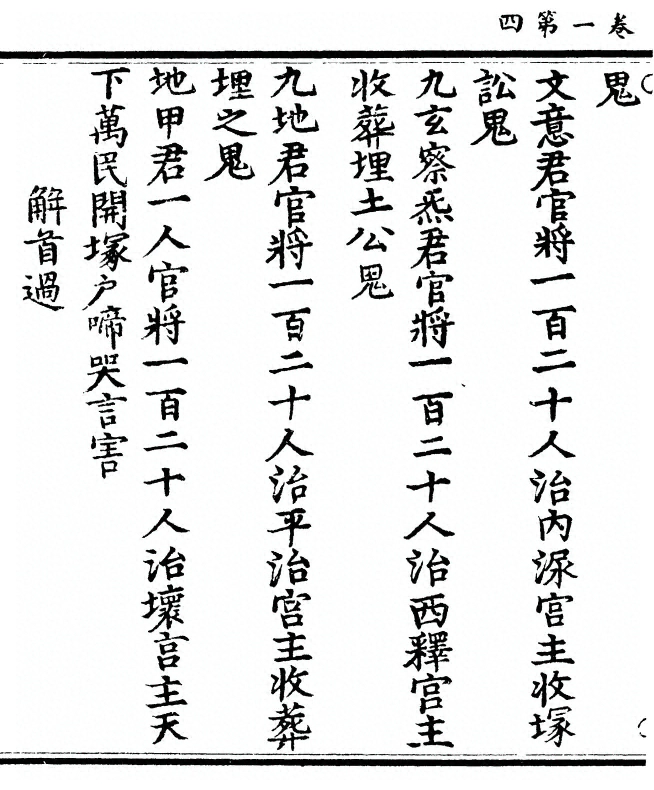 卷一第四
鬼
文意君官將一百二十人治內㞙宮主收塚
訟鬼
九玄察炁君官將一百二十人治西釋宮主
收葬埋土公鬼
九地君官將一百二十人治平治宮主收葬
埋之鬼
地甲君一人官將一百二十人治壞宮主天
下萬民開塚户啼哭言害
解首過